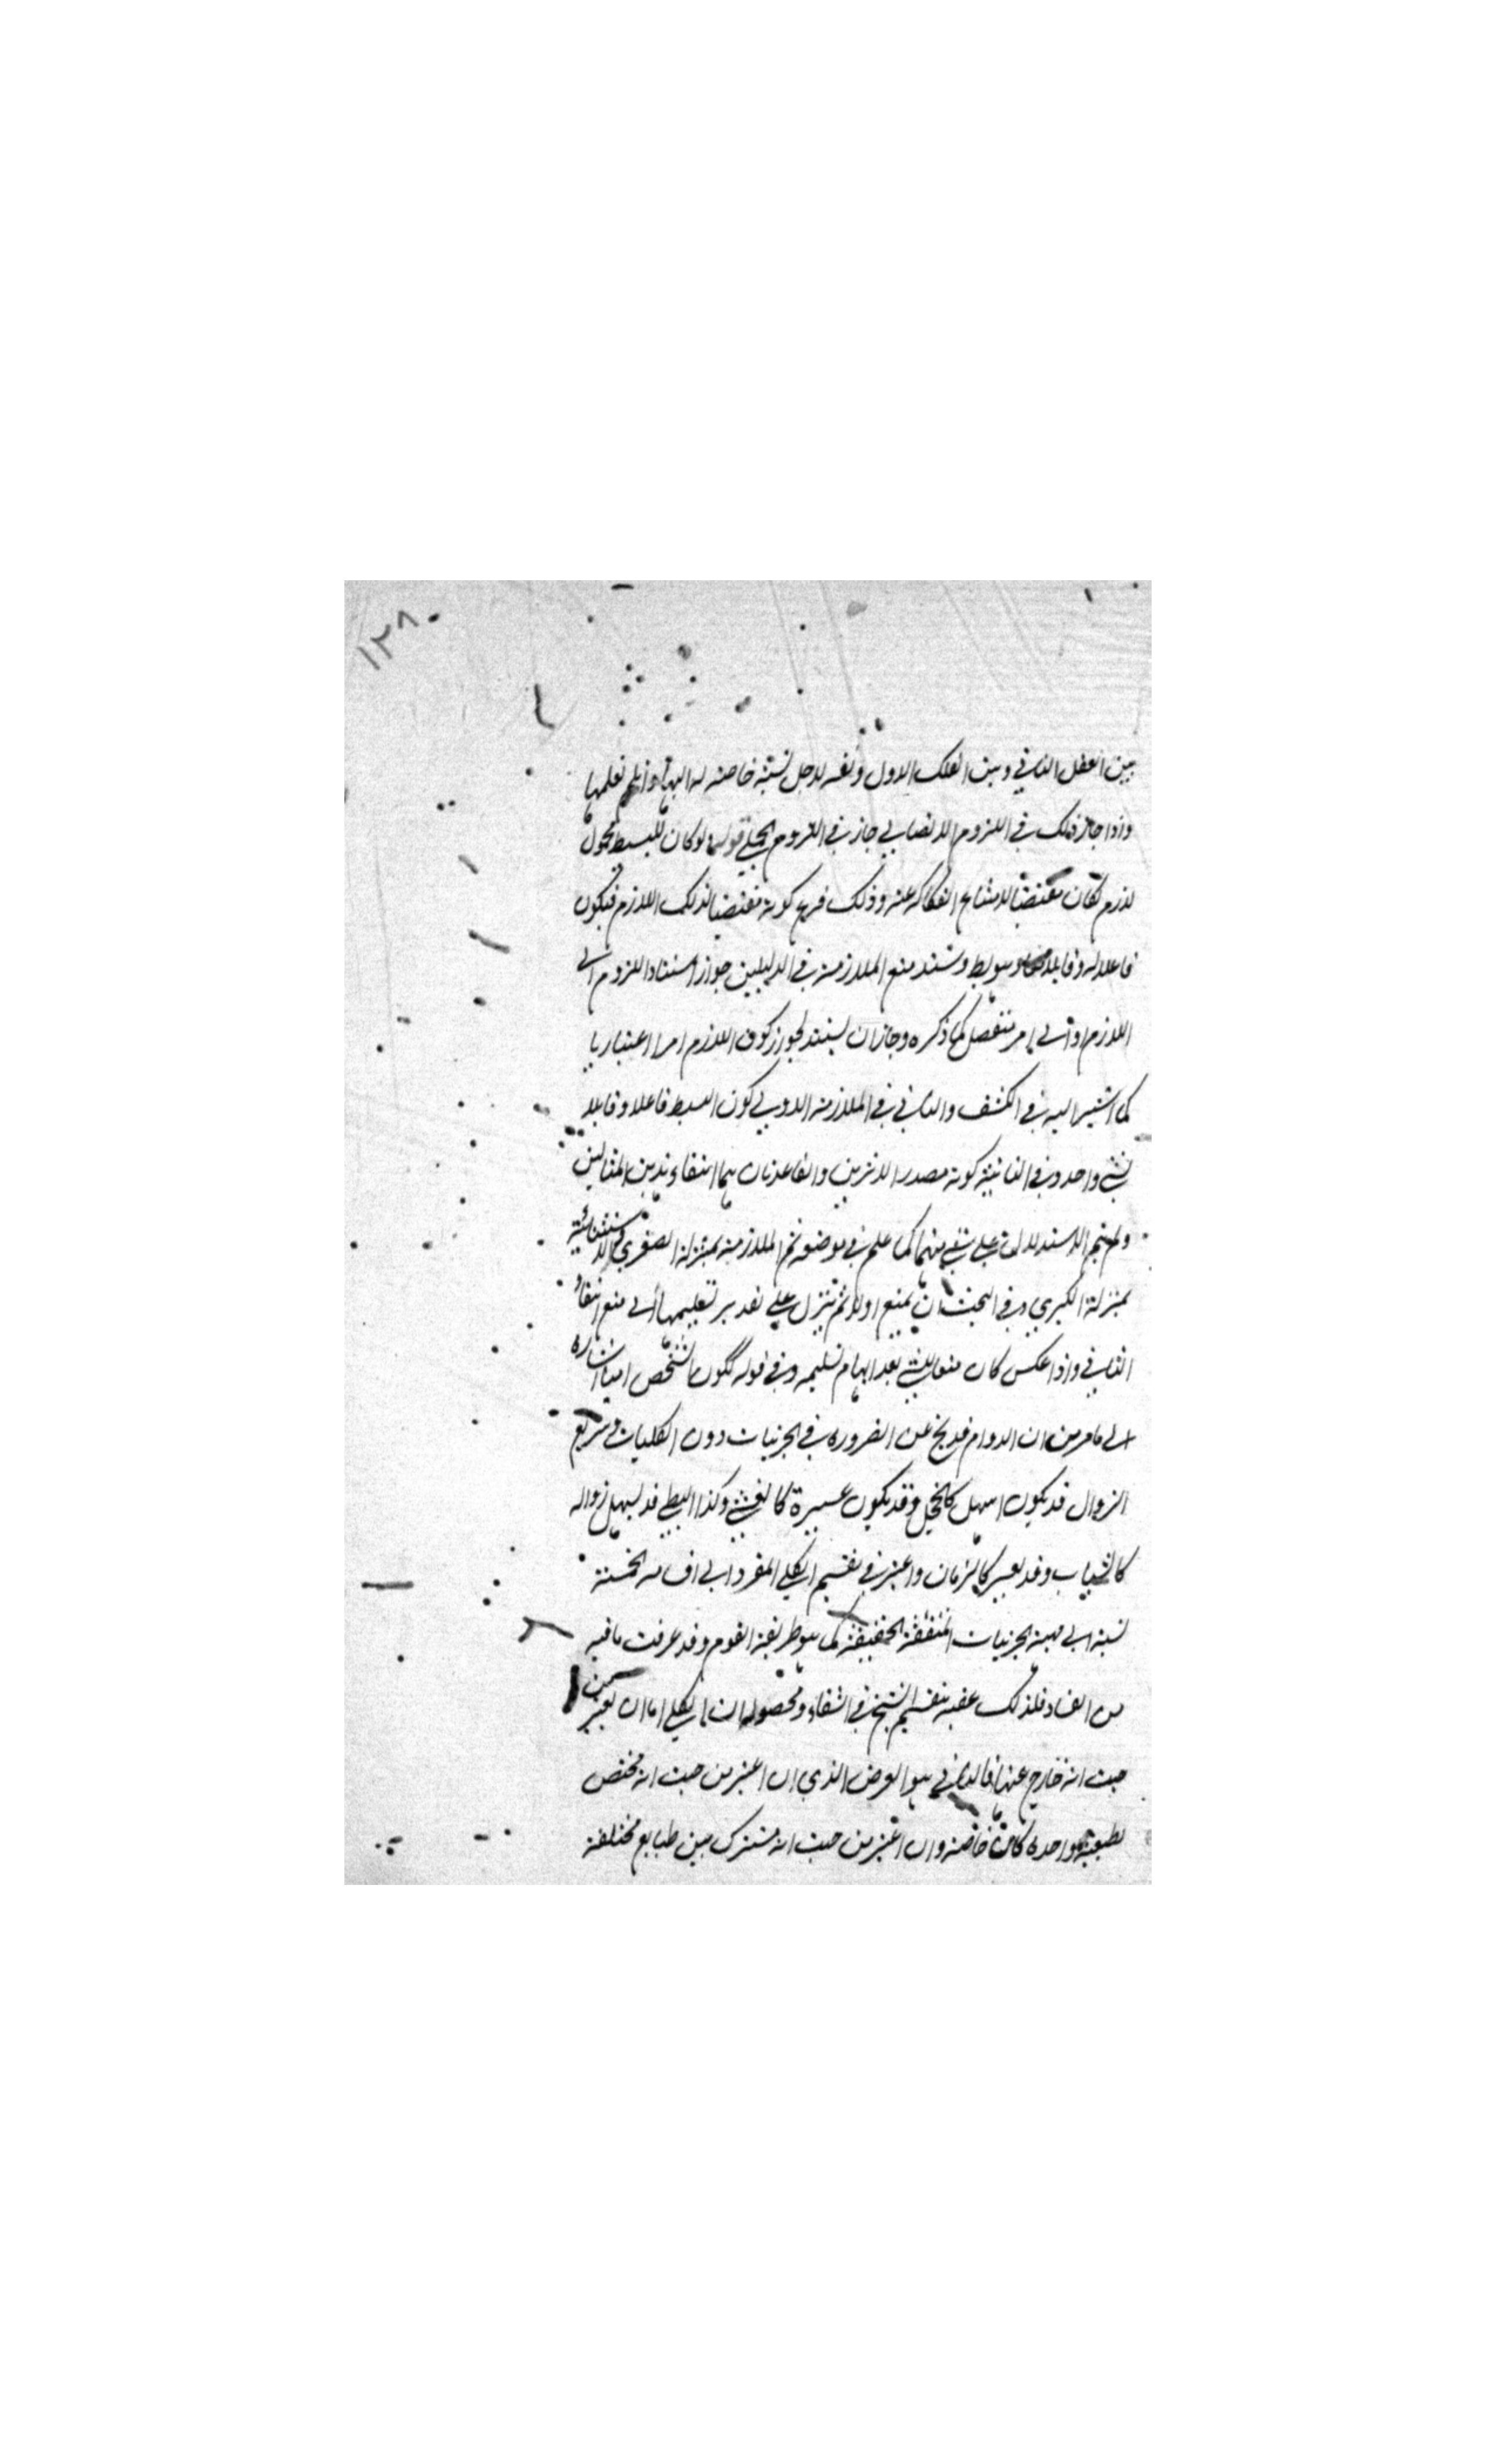 ١٣٨
بين العقل الثاني وبين الفلك الاول ونفسه لاجل نسبة خاصة له اليها وان لم نعلمها
واذا جاز ذلك في اللزوم الاتصالي جاز في اللزوم الحملي قوله ولو كان للبسيط محمول
لازم لكان مقتضيا لامتناع انفكاكه عنه وذلك فرع كونه مقتضيا لذلك اللازم فيكون
فاعلا له وقابلا وهو بسيط ومستند منع الملازمة في الدليلين جواز استناد اللزوم الى
اللازم او الى امر منفصل كما ذكره وجاز ان يستند لجواز كون اللازم امرا اعتباريا
كما اشير اليه في الكشف والتالي في الملازمة الاولى كون البسيط فاعلا وقابلا
لشيء واحد وفي الثانية كونه مصدرا لاثرين والقاعدتان هما انتفاء هذين المثالين
ولم يتم الاستدلالات على شيء منهما كما علم في موضعه ثم الملازمة بمنزلة الصغرى والاستثنائية
بمنزلة الكبرى وفي البحث ان يمنع اولا ثم يتنزل على تقدير تسليمها الى منع انتفاء
الثاني واذا عكس كان منعا للشيء بعد ايهام تسليمه وفي قوله ككون الشخص اميا اشاره
الى ما مر من ان الدوام قد يخ عن الضروره في الجزئيات دون الكليات وسريع
الزوال قد يكون اسهل كالخجل وقد يكون عسيرة كالغشي وكذا البطي قد يسهل زواله
كالشباب وقد يعسر كالزمان واعتبر في تقسيم الكلي المفرد الى اقسامه الخمسة
نسبته الى مهية الجزئيات المتفقة الحقيقة كما هو طريقة القوم وقد عرفت ما فيه
من الفساد فلذلك عقبه بتقسيم الشيخ في الشفاء ومحصوله ان الكلي اما ان يعتبر من
حيث انه خارج عنها فالثاني هو العرض الذي ان اعتبر من حيث انه مختص
بطبيعة واحدة كان خاصة وان اعتبر من حيث انه مشترك بين طبايع مختلفة